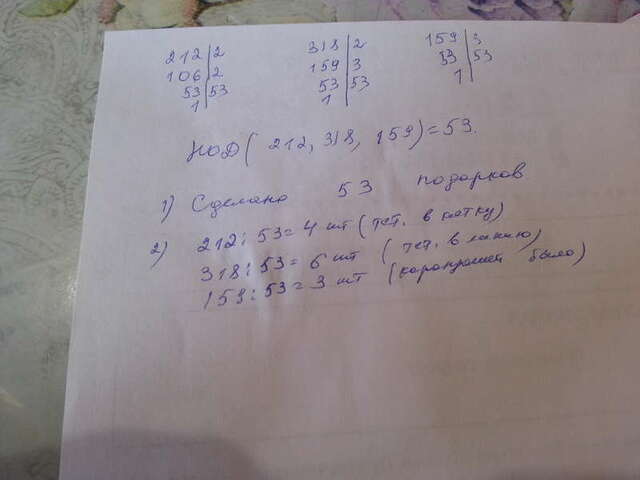 212 | 2   318 | 2   159 | 3
106 | 2   159 | 3   53 | 53
53 | 53   53 | 53   1
1   1
НОД( 212, 318, 159)=53.
1) Сделано 53 подарков
2) 212:53=4 шт (тет. в клетку)
318:53=6 шт ( тет. в линию)
159:53=3 шт (карандашей было)